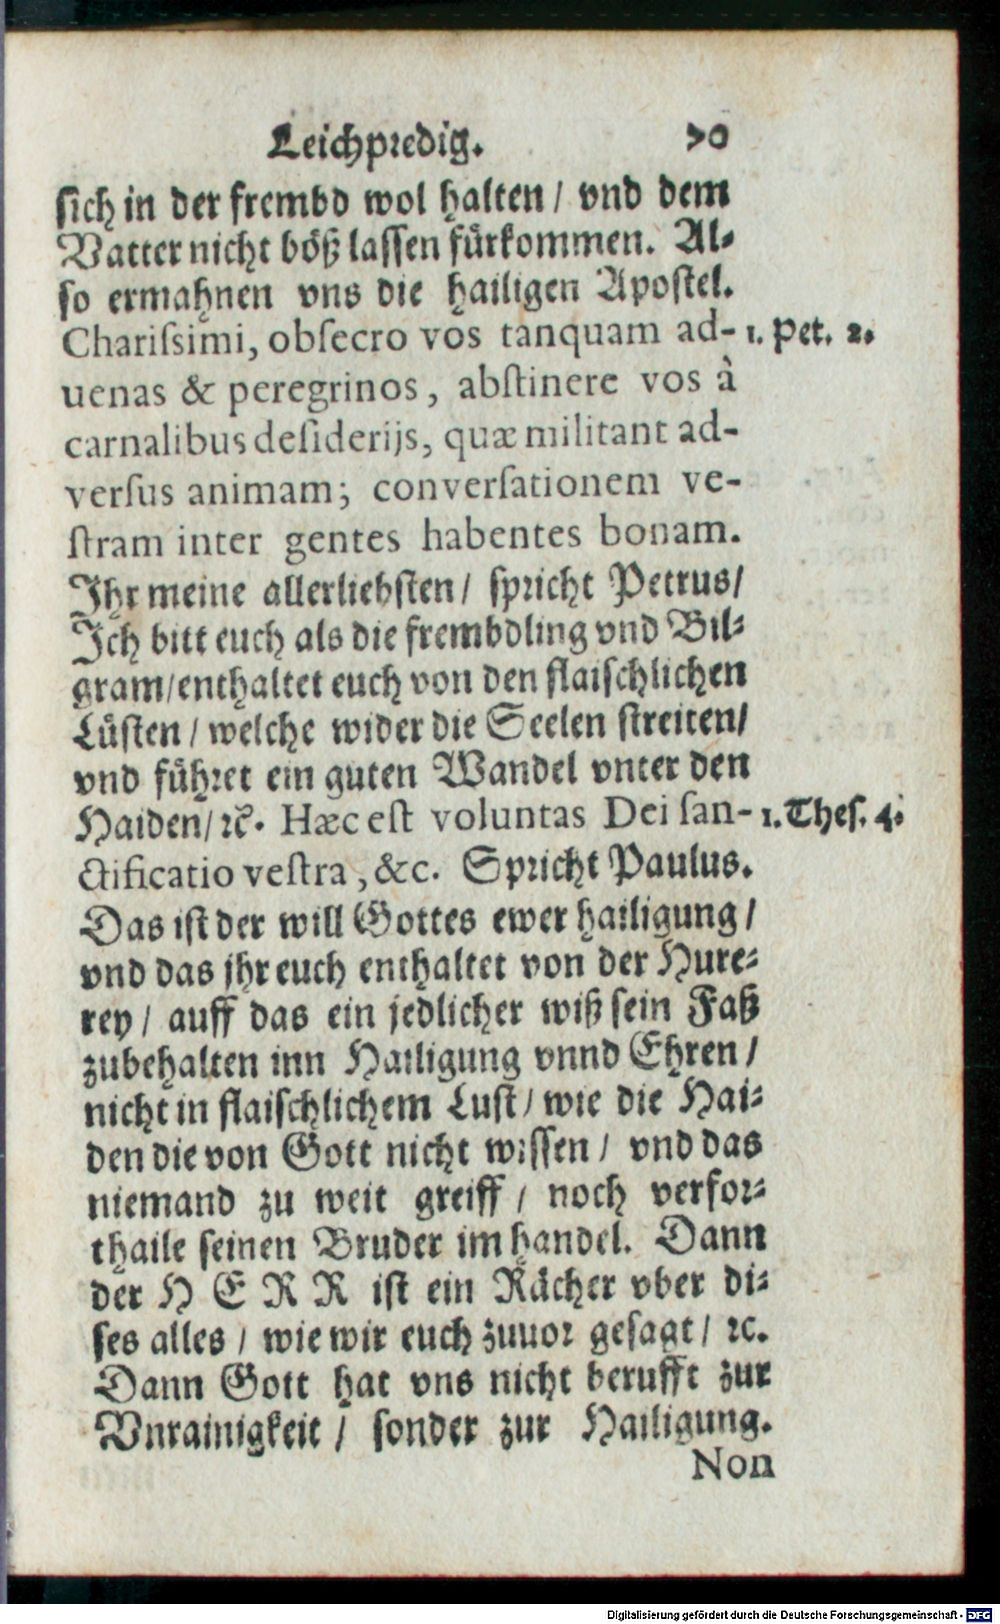 Leichpredig. 70
sich in der frembd wol halten / vnd dem
Vatter nicht böß lassen fürkommen. Al⸗
so ermahnen vns die hailigen Apostel.
Chariſsimi, obſecro vos tanquam ad- 1. Pet. 2.
uenas & peregrinos, abſtinere vos à
carnalibus deſiderijs, quæ militant ad-
verſus animam; converſationem ve-
ſtram inter gentes habentes bonam.
Ihr meine allerliebsten / spricht Petrus /
Ich bitt euch als die frembdling vnd Bil⸗
gram / enthaltet euch von den flaischlichen
Lüsten / welche wider die Seelen streiten /
vnd führet ein guten Wandel vnter den
Haiden / ꝛc. Hæc eſt voluntas Dei ſan- 1. Thes. 4.
ctificatio veſtra, &c. Spricht Paulus.
Das ist der will Gottes ewer hailigung /
vnd das jhr euch enthaltet von der Hure⸗
rey / auff das ein jedlicher wiß sein Faß
zubehalten inn Hailigung vnnd Ehren /
nicht in flaischlichem Lust / wie die Hai⸗
den die von Gott nicht wissen / vnd das
niemand zu weit greiff / noch verfor⸗
thaile seinen Bruder im handel. Dann
der HERR ist ein Rächer vber di⸗
ses alles / wie wir euch zuuor gesagt / ꝛc.
Dann Gott hat vns nicht berufft zur
Vnrainigkeit / sonder zur Hailigung.
Non
Digitalisierung gefördert durch die Deutsche Forschungsgemeinschaft - DFG